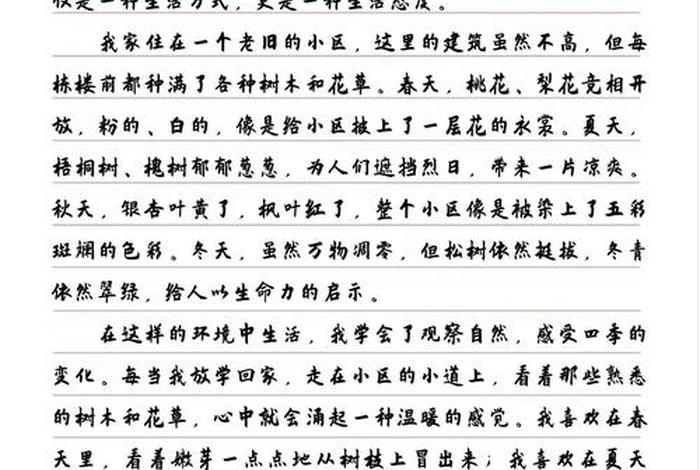 仅是一种生活方式，更是一种生活态度。
我家住在一个老旧的小区，这里的建筑虽然不高，但每
栋楼前都种满了各种树木和花草。春天，桃花、梨花竞相开
放，粉的、白的，像是给小区披上了一层花的衣裳。夏天，
梧桐树、槐树郁郁葱葱，为人们遮挡烈日，带来一片凉爽。
秋天，银杏叶黄了，枫叶红了，整个小区像是被染上了五彩
斑斓的色彩。冬天，虽然万物凋零，但松树依然挺拔，冬青
依然翠绿，给人以生命力的启示。
在这样的环境中生活，我学会了观察自然，感受四季的
变化。每当我放学回家，走在小区的小道上，看着那些熟悉
的树木和花草，心中就会涌起一种温暖的感觉。我喜欢在春
天里，看着嫩芽一点点地从树枝上冒出来；我喜欢在夏天